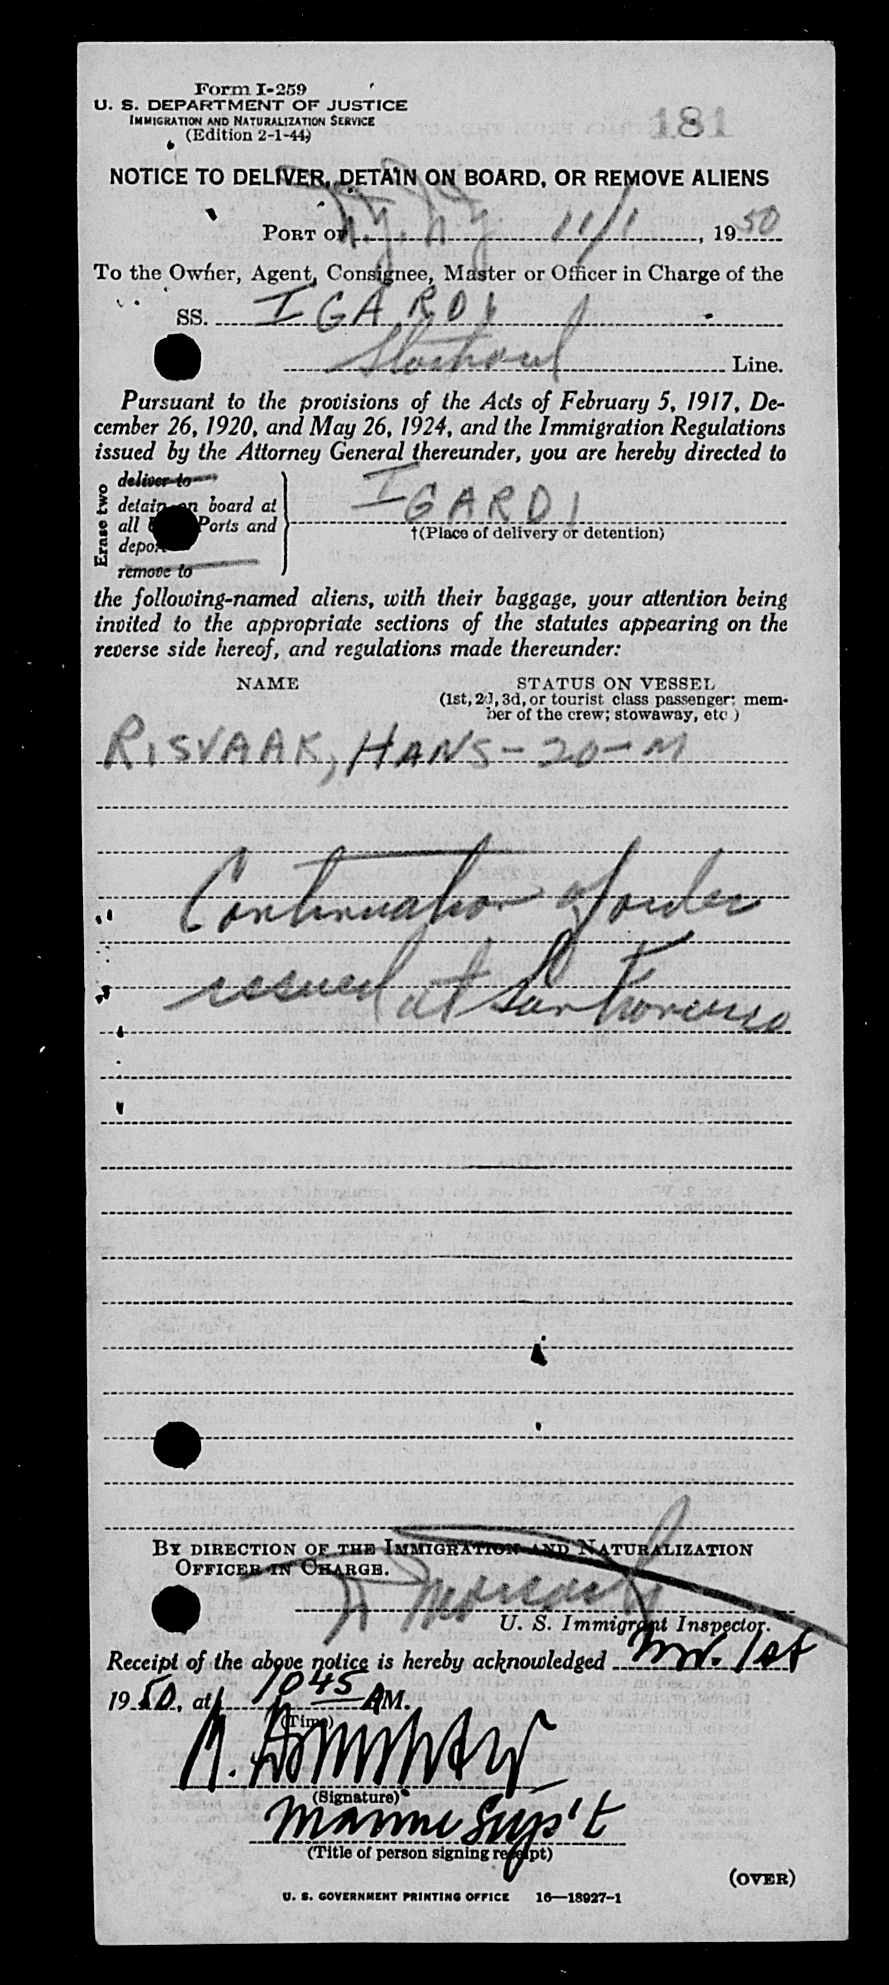 Form I-259
U. S. DEPARTMENT OF JUSTICE
IMMIGRATION AND NATURALIZATION SERVICE
(Edition 2-1-44)
181
NOTICE TO DELIVER, DETAIN ON BOARD, OR REMOVE ALIENS
PORT OF N.Y. N.Y. 11/1, 1950
To the Owner, Agent, Consignee, Master or Officer in Charge of the
SS. IGARDI
Line.
Pursuant to the provisions of the Acts of February 5, 1917, De-
cember 26, 1920, and May 26, 1924, and the Immigration Regulations
issued by the Attorney General thereunder, you are hereby directed to
Erase two
deliver to
detain on board at
all Ports and
deport
remove to
IGARDI
†(Place of delivery or detention)
the following-named aliens, with their baggage, your attention being
invited to the appropriate sections of the statutes appearing on the
reverse side hereof, and regulations made thereunder:
NAME
STATUS ON VESSEL
(1st, 2d, 3d, or tourist class passenger; mem-
ber of the crew; stowaway, etc.)
RISVAAK, HANS - 20 - M
Continuation of order
issued at San
BY DIRECTION OF THE IMMIGRATION AND NATURALIZATION
OFFICER IN CHARGE.
U. S. Immigrant Inspector.
Receipt of the above notice is hereby acknowledged Nov. 1st
1950, at 1045 AM.
(Time)
(Signature)
Marine Sup't
(Title of person signing receipt)
(OVER)
U. S. GOVERNMENT PRINTING OFFICE 16—18927-1